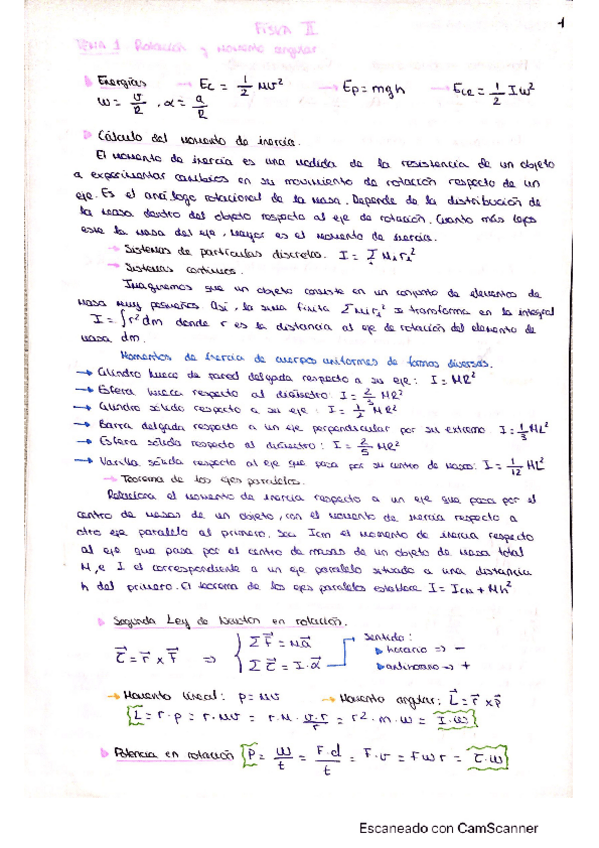 1
FÍSICA II
TEMA 1 Rotación y momento angular
Energías → Ec = 1/2 Mv² → Ep = mgh → Ecr = 1/2 Iω²
ω = v/R , α = a/R
Cálculo del momento de inercia.
El momento de inercia es una medida de la resistencia de un objeto
a experimentar cambios en su movimiento de rotación respecto de un
eje. Es el análogo rotacional de la masa. Depende de la distribución de
la masa dentro del objeto respecto al eje de rotación. Cuanto más lejos
este la masa del eje, mayor es el momento de inercia.
→ Sistemas de partículas discretos. I = Σ Mi ri²
→ Sistemas continuos.
Imaginemos que un objeto consiste en un conjunto de elementos de
masa muy pequeños. Así, la suma finita Σ Mi ri² se transforma en la integral
I = ∫r² dm donde r es la distancia al eje de rotación del elemento de
masa dm.
Momentos de inercia de cuerpos uniformes de formas diversas.
→ Cilindro hueco de pared delgada respecto a su eje : I = MR²
→ Esfera hueca respecto al diámetro : I = 2/3 MR²
→ Cilindro sólido respecto a su eje : I = 1/2 MR²
→ Barra delgada respecto a un eje perpendicular por su extremo. I = 1/3 ML²
→ Esfera sólida respecto al diámetro : I = 2/5 MR²
→ Varilla sólida respecto al eje que pasa por su centro de masas: I = 1/12 ML²
→ Teorema de los ejes paralelos.
Relaciona el momento de inercia respecto a un eje que pasa por el
centro de masas de un objeto, con el momento de inercia respecto a
otro eje paralelo al primero. Sea Icm el momento de inercia respecto
al eje que pasa por el centro de masas de un objeto de masa total
M, e I el correspondiente a un eje paralelo situado a una distancia
h del primero. El teorema de los ejes paralelos establece I = Icm + Mh²
Segunda Ley de Newton en rotación.
τ⃗ = r⃗ x F⃗ ⇒ { Σ F⃗ = M a⃗
Σ τ⃗ = I · α⃗ → sentido :
horario ⇒ −
antihorario ⇒ +
→ Momento lineal : p = Mv → Momento angular : L⃗ = r⃗ x p⃗
L = r · p = r · Mv = r · M · v·r/r = r² · m · ω = I · ω
Potencia en rotación P = W/t = F·d/t = F · v = F ω r = τ · ω
Escaneado con CamScanner